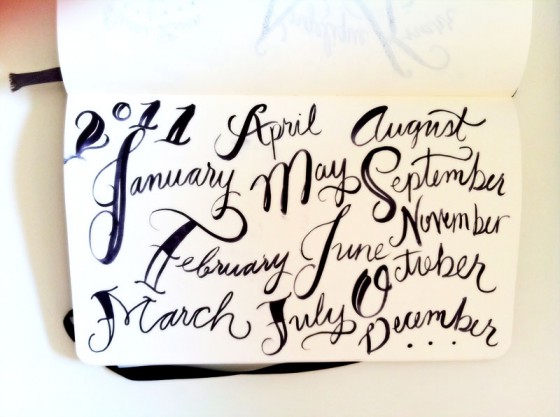 2011 April August
January May September
November
February June October
March July December....